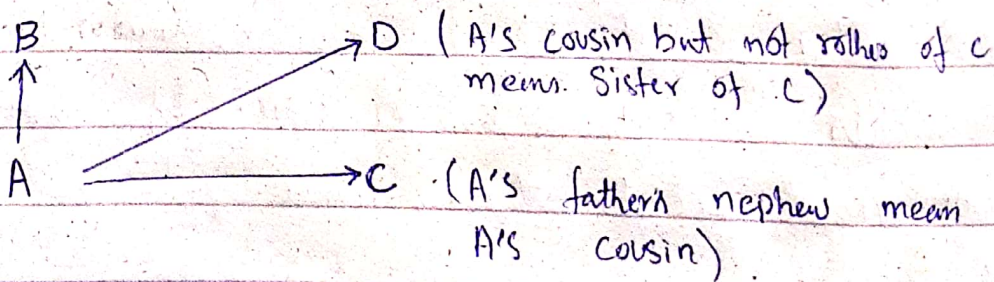 B
D (A's cousin but not rother of c
means. Sister of C)
A
C (A's father's nephew mean
A's cousin).